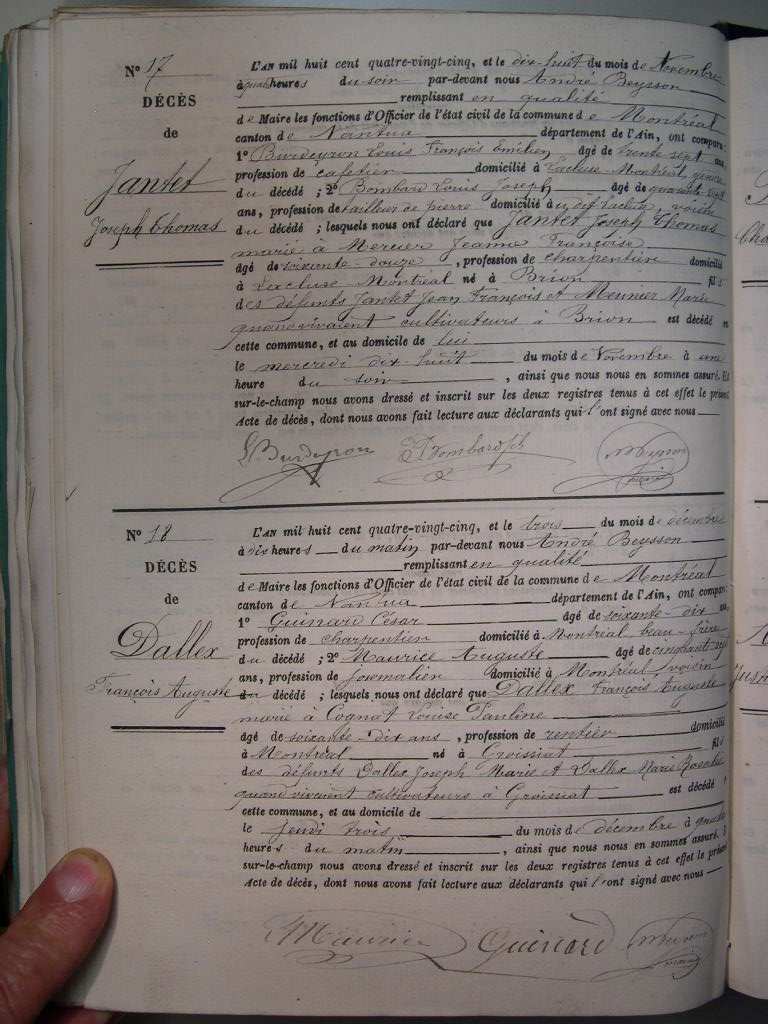 N° 17
DÉCÈS
de
Jantet
Joseph Thomas
L'AN mil huit cent quatre-vingt-cinq, et le dix-huit du mois de Novembre
à quatre heures du soir par-devant nous André Beysson
remplissant en qualité
de Maire les fonctions d'Officier de l'état civil de la commune de Montréal
canton de Nantua département de l'Ain, ont comparu
1° Burdeyron Louis François Emilien âgé de trente sept ans
profession de cafetier domicilié à Lacluse Montréal,
du décédé ; 2° Bombard Louis Joseph âgé de quarante
ans, profession de tailleur de pierre domicilié à dit Lacluse, voisin
du décédé ; lesquels nous ont déclaré que Jantet Joseph Thomas
marié à Mercier Jeanne Françoise
âgé de soixante-douze , profession de charpentier domicilié
à Lacluse Montréal né à Brion fils
des défunts Jantet Jean François et Meunier Marie
quand vivaient cultivateurs à Brion est décédé en
cette commune, et au domicile de lui
le mercredi dix-huit du mois de Novembre à une
heure du soir , ainsi que nous nous en sommes assuré. Et
sur-le-champ nous avons dressé et inscrit sur les deux registres tenus à cet effet le présent
Acte de décès, dont nous avons fait lecture aux déclarants qui l'ont signé avec nous
L. Burdeyron Bombard Jh
N° 18
DÉCÈS
de
Dallex
François Auguste
L'AN mil huit cent quatre-vingt-cinq, et le trois du mois de décembre
à dix heures du matin par-devant nous André Beysson
remplissant en qualité
de Maire les fonctions d'Officier de l'état civil de la commune de Montréal
canton de Nantua département de l'Ain, ont comparu
1° Guinard César âgé de soixante-dix ans,
profession de charpentier domicilié à Montréal beau-frère
du décédé ; 2° Maurice Auguste âgé de cinquante sept
ans, profession de journalier domicilié à Montréal, voisin
du décédé ; lesquels nous ont déclaré que Dallex François Auguste
marié à Cognat Louise Pauline
âgé de soixante-dix ans , profession de rentier domicilié
à Montréal né à Groissiat fils
des défunts Dallex Joseph Marie et Dallex Marie Rosalie
quand vivaient cultivateurs à Groissiat est décédé
cette commune, et au domicile de
le jeudi trois du mois de décembre à quatre
heures du matin , ainsi que nous nous en sommes assuré.
sur-le-champ nous avons dressé et inscrit sur les deux registres tenus à cet effet le présent
Acte de décès, dont nous avons fait lecture aux déclarants qui l'ont signé avec nous
Maurice Guinard